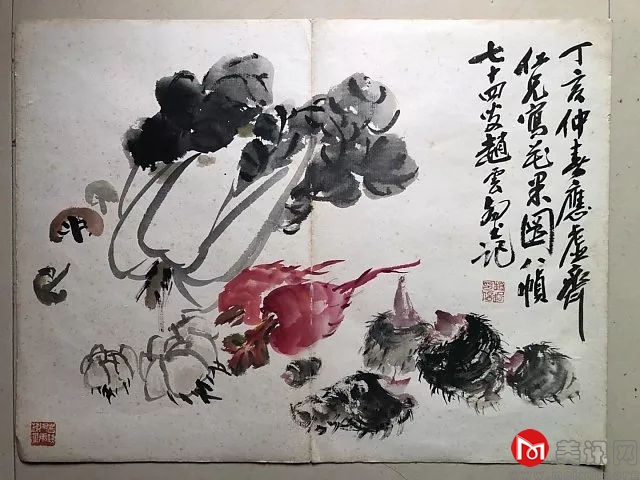 丁亥仲春應虛齋
仁兄寫花果圖八幀
七十四叟趙雲壑記
美讯网